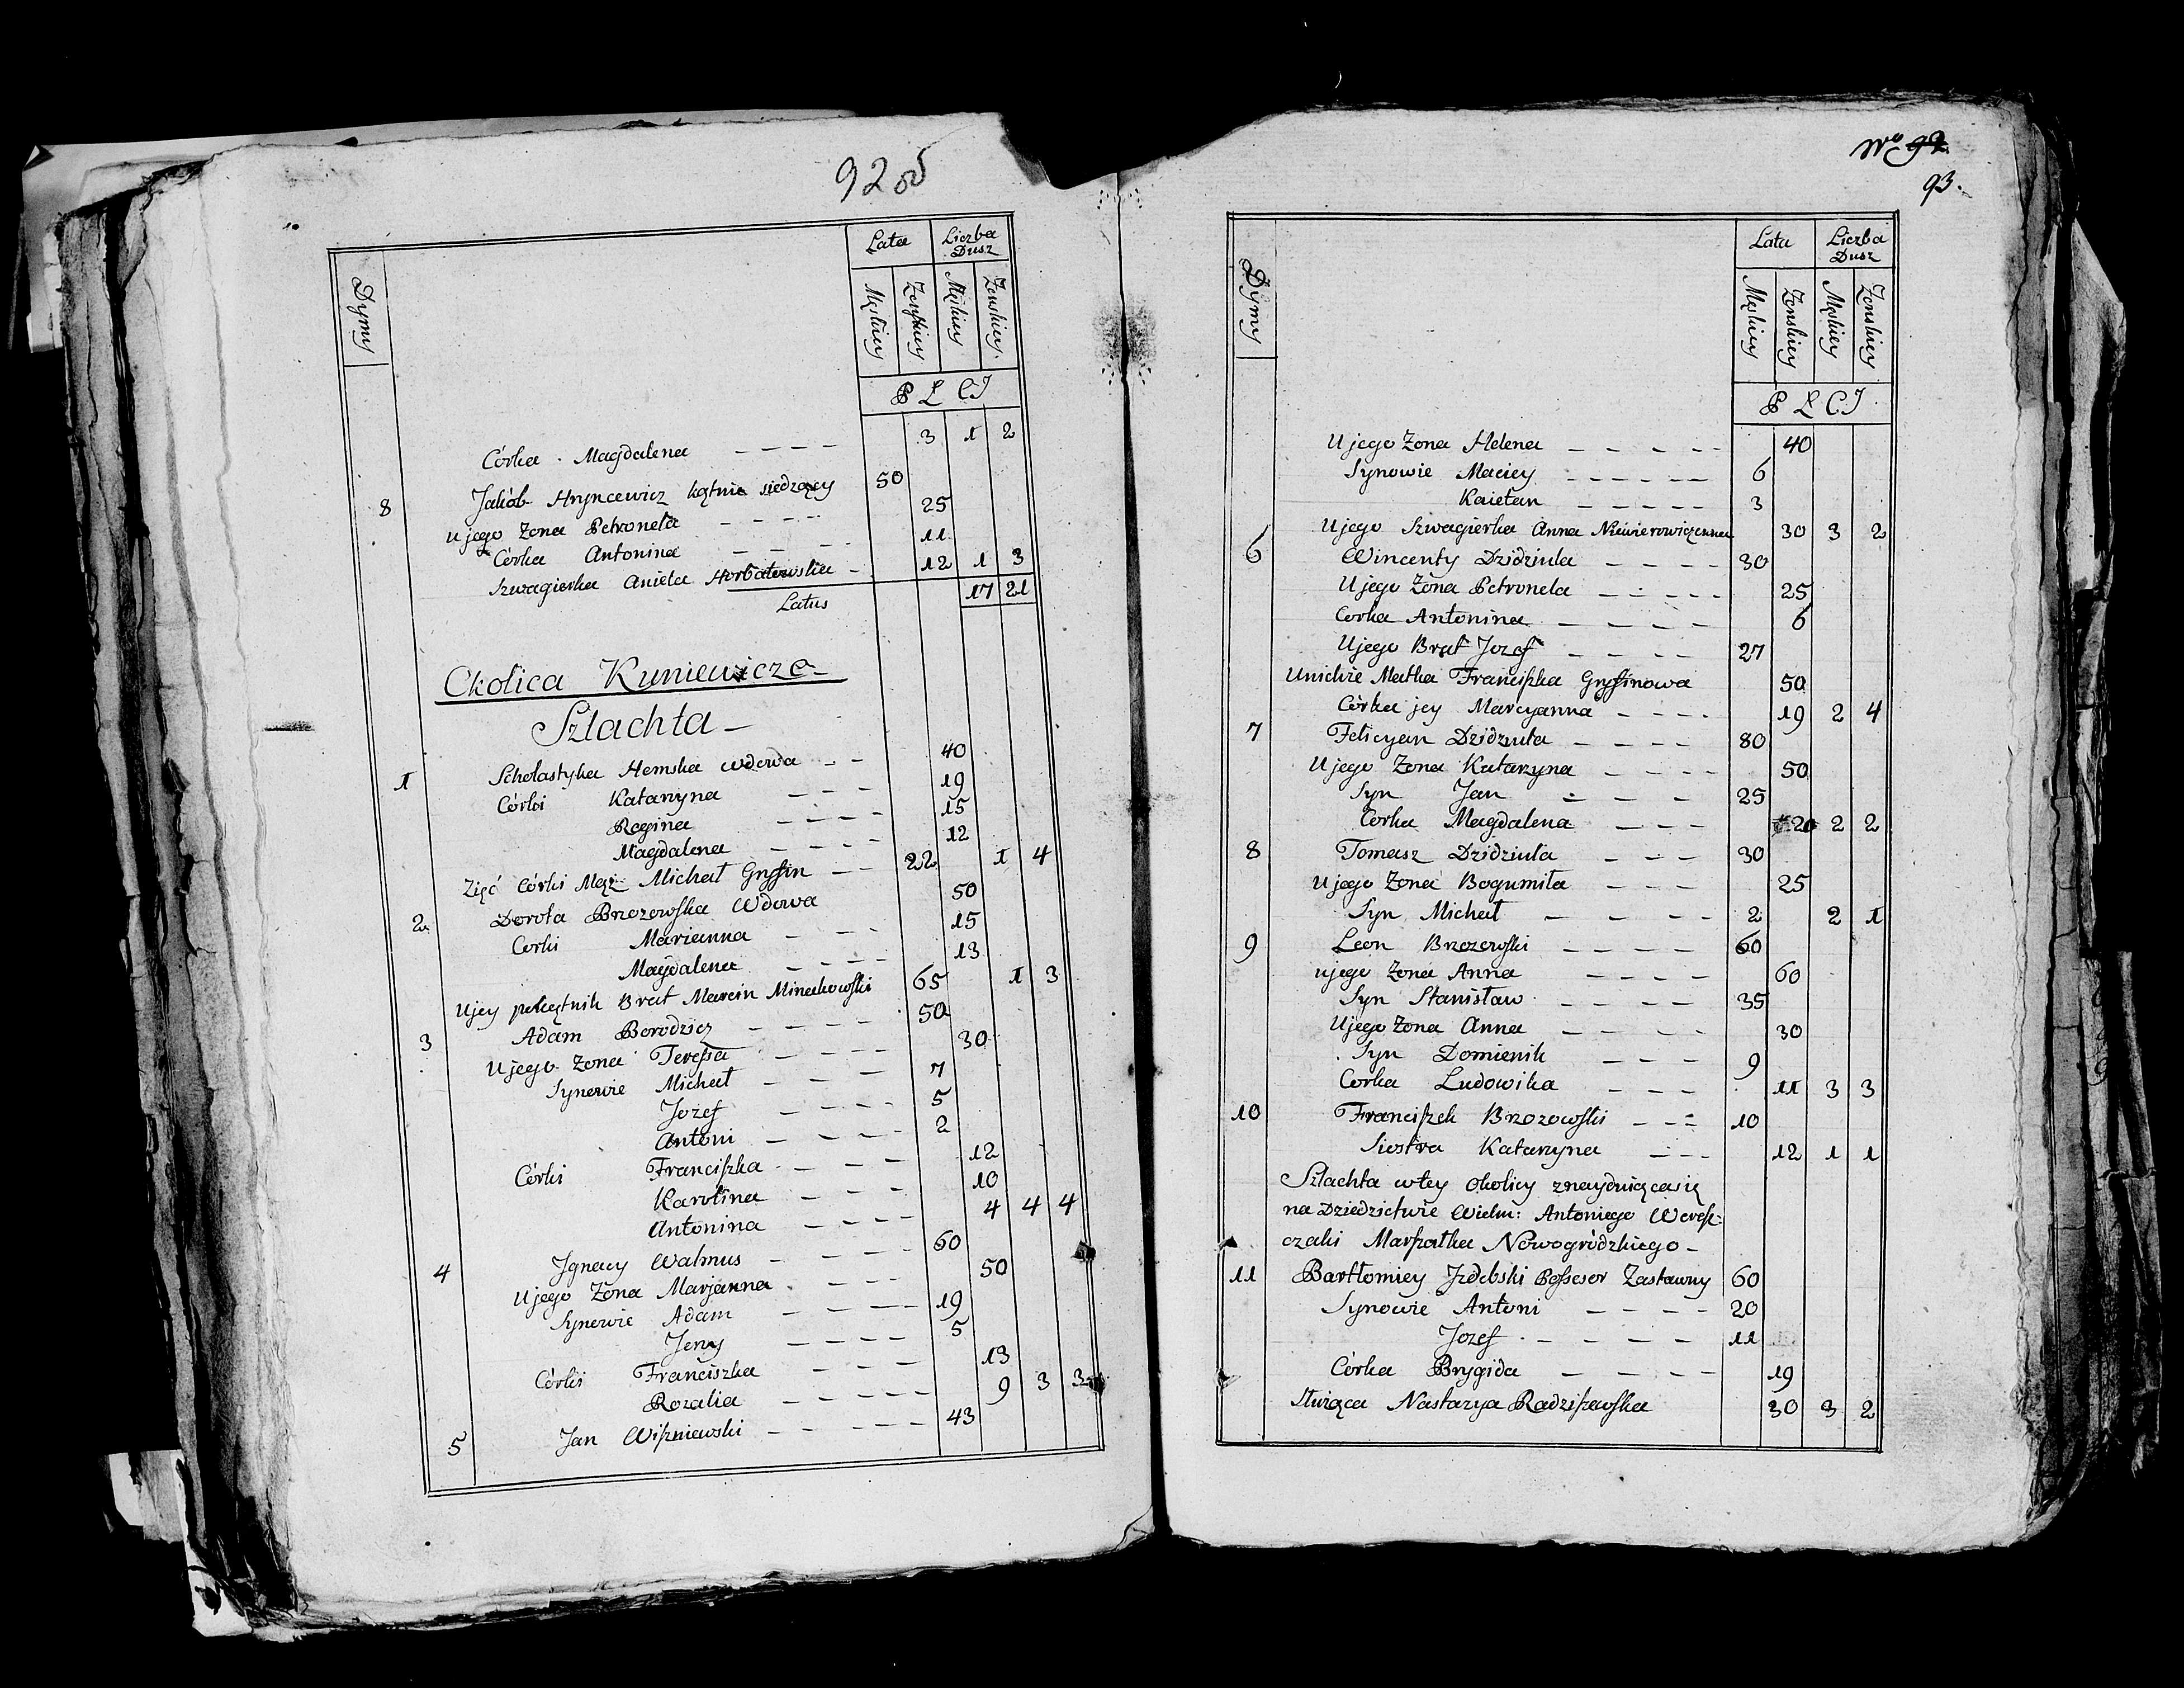 92 об
Dymy
Lata
Liczba Dusz
Męskiey
Zenskiey
Męskiey
Zenskiey
P Ł C I
Córka Magdalena 3 1 2
8 Jakób Hryncewicz kątnie siedzący 50
u jego Zona Petronela 25
Córka Antonina 11
Szwagierka Aniela Horbatowska 12 1 3
Latus 17 21
Okolica Kuniewicze
Szlachta
1 Scholastyka Hemska wdowa 40
Córki Katarzyna 19
Regina 15
Magdalena 12
Zięć Córki Mąż Michał Gryffin 22 1 4
2 Dorota Brzozowska Wdowa 50
Corki Marianna 15
Magdalena 13
Ujey pokątnik Brat Marcin Minakowski 65 1 3
3 Adam Borodzicz 50
Ujego Zona Teressa 30
Synowie Michał 7
Jozef 5
Antoni 2
Córki Franciszka 12
Karolina 10
Antonina 4 4 4
4 Jgnacy Walmus 60
Ujego Zona Marjanna 50
Synowie Adam 19
Jerzy 5
Córki Franciszka 13
Rozalia 9 3 3
5 Jan Wiszniewski 43
No 92
93.
Dymy
Lata
Liczba Dusz
Męskiey
Zenskiey
Męskiey
Zenskiey
P Ł C I
U jego Zona Helena 40
Synowie Maciey 6
Kaietan 3
U jego Szwagierka Anna Niewierowiczowna 30 3 2
6 Wincenty Dzidziula 30
U jego Zona Petronela 25
Corka Antonina 6
Ujego Brat Jozef 27
Unichże Matka Franciszka Gryffinowa 50
Córka jey Marcyanna 19 2 4
7 Felicyan Dzidziula 80
U jego Zona Katarzyna 50
Syn Jan 25
Corka Magdalena 20 2 2
8 Tomasz Dzidziula 30
U jego Zona Bogumiła 25
Syn Michał 2 2 1
9 Leon Brzozowski 60
ujego Zona Anna 60
Syn Stanisław 35
Ujego Zona Anna 30
Syn Domienik 9
Corka Ludowika 11 3 3
10 Franciszek Brzozowski 10
Siostra Katarzyna 12 1 1
Szlachta wtey okolicy znayduiącasię
na Dziedzictwie Wielm: Antoniego Weresz:
czaki Marszałka Nowogródzkiego
11 Bartłomiey Jzdebski Possesor Zastawny 60
Synowie Antoni 20
Jozef 11
Córka Brygida 19
Służąca Nastazya Radziszewska 30 3 2